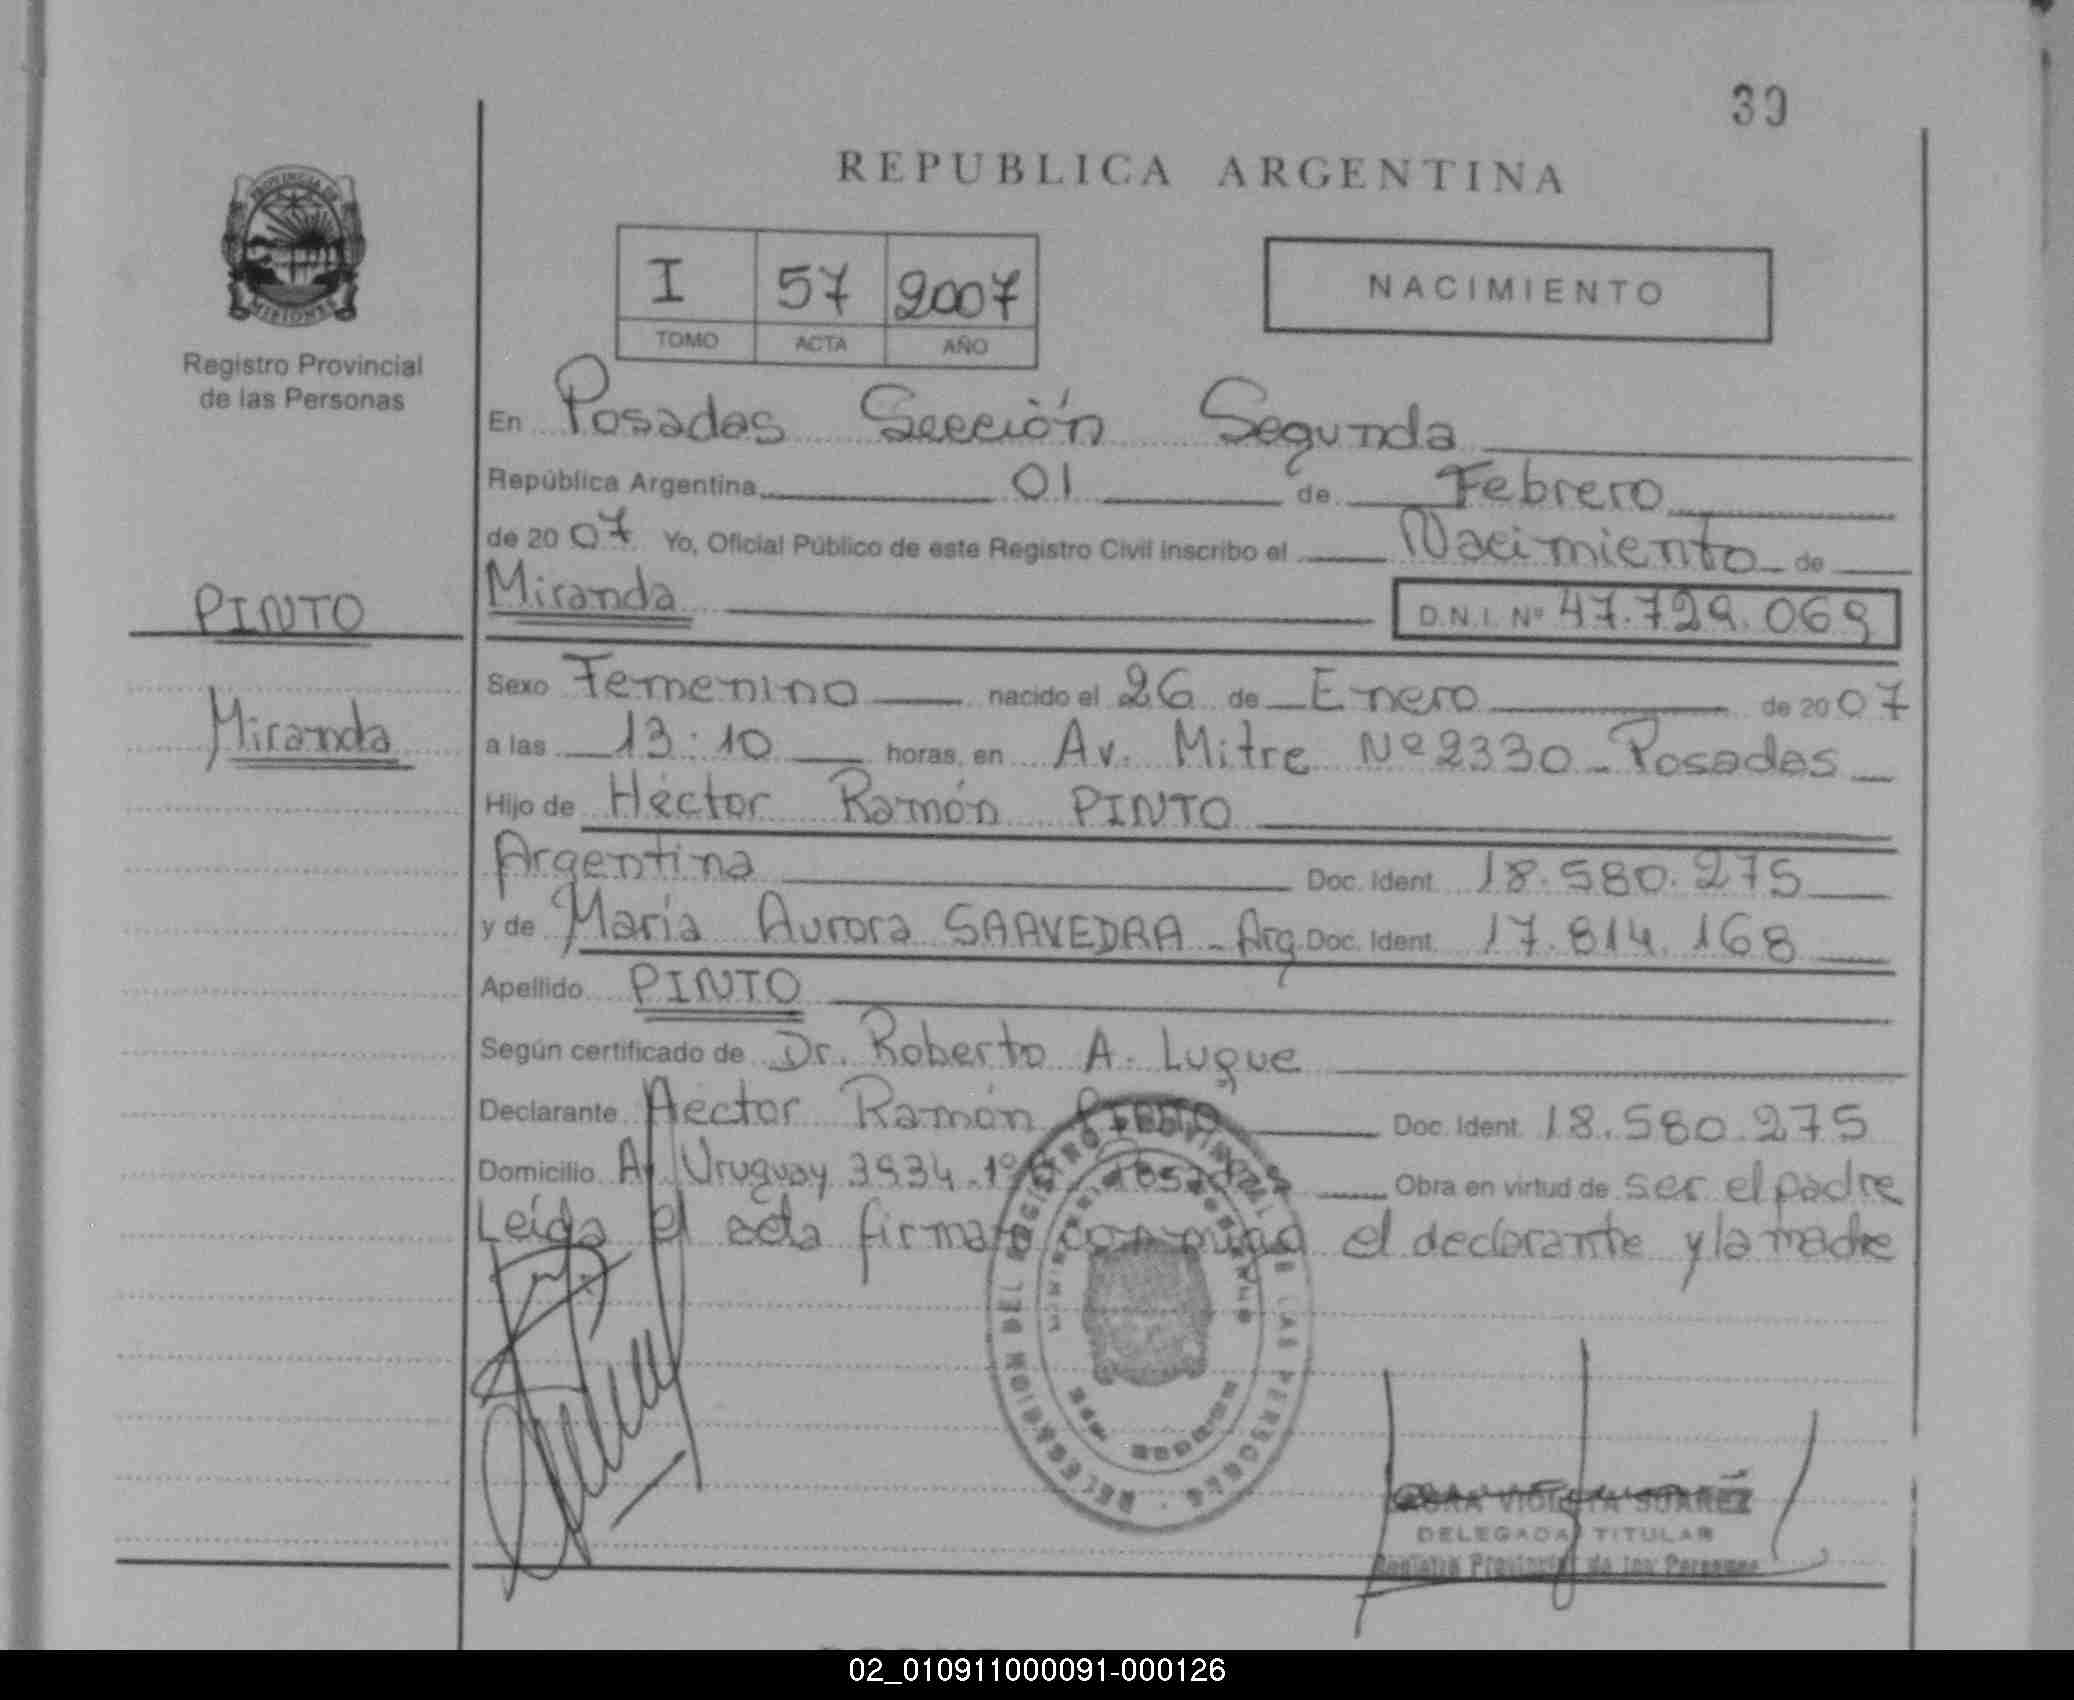 39
REPUBLICA ARGENTINA
PROVINCIA DE
MISIONES
Registro Provincial
de las Personas
I 57 2007
TOMO ACTA AÑO
NACIMIENTO
En Posadas Sección Segunda
República Argentina 01 de Febrero
de 2007 Yo, Oficial Público de este Registro Civil inscribo el Nacimiento de
PINTO
Miranda
Miranda D.N.I. Nº 47.729.069
Sexo Femenino nacido el 26 de Enero de 2007
a las 13:10 horas, en Av. Mitre Nº 2330 - Posadas
Hijo de Héctor Ramón PINTO
Argentina Doc. Ident. 18.580.275
y de María Aurora SAAVEDRA - Arg. Doc. Ident. 17.814.168
Apellido PINTO
Según certificado de Dr. Roberto A. Luque
Declarante Hector Ramón PINTO Doc. Ident. 18.580.275
Domicilio Av. Uruguay 3934 - 1º Posadas Obra en virtud de ser el padre
Leída el acta firman conmigo el declarante y la madre
DELEGACION DEL REGISTRO PROVINCIAL DE LAS PERSONAS
VIOLETA SUAREZ
DELEGADA TITULAR
Registro Provincial de las Personas
02_010911000091-000126